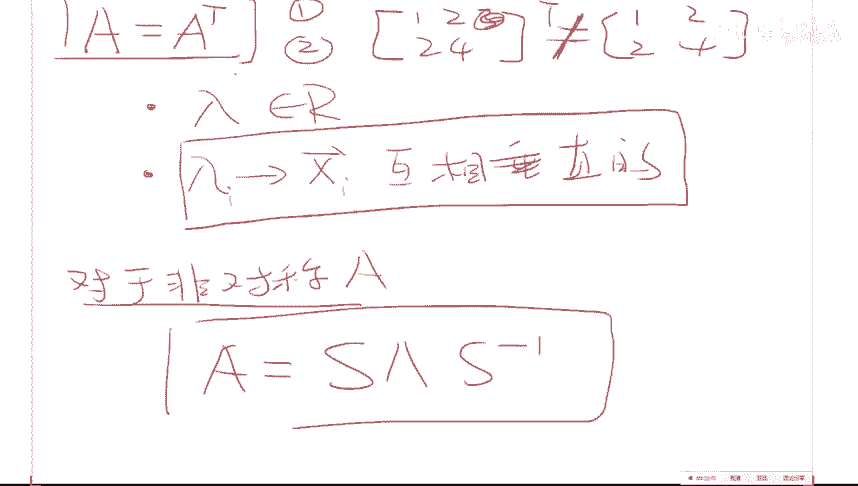 A = Aᵀ ① ② [1 2 2 4]ᵀ ≠ [1 2 2 4]
· λ ∈ R
· λᵢ → x⃗ᵢ 互相垂直的
对于非对称 A
A = S Λ S⁻¹